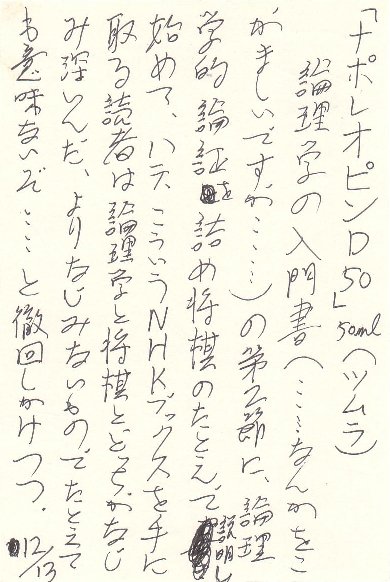 「ナポレオピンD50」50ml(ツムラ)
論理学の入門書(……なんかをこ
がましいですが……)の第二節に、論理
学的論証を詰め将棋のたとえで説明し
始めて、ハテ、こういうNHKブックスを手に
取る読者は論理学と将棋とどちらがなじ
み深いんだ、よりなじみないものでたとえて
も意味ないぞ……と徹回しかけつつ。
12/13